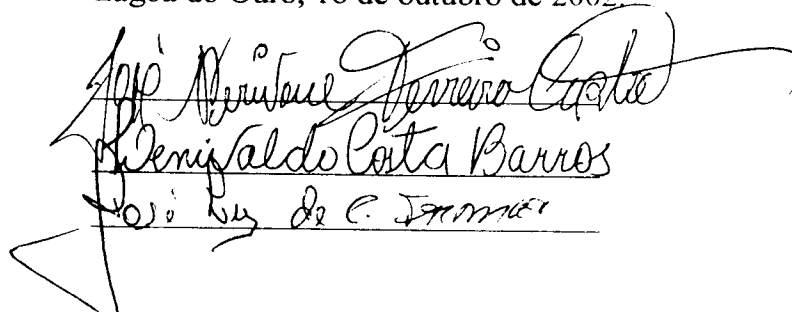 Lagoa do Ouro, 18 de outubro de 2002.
José Ferreira Costa
Denivaldo Costa Barros
José Luz de C.